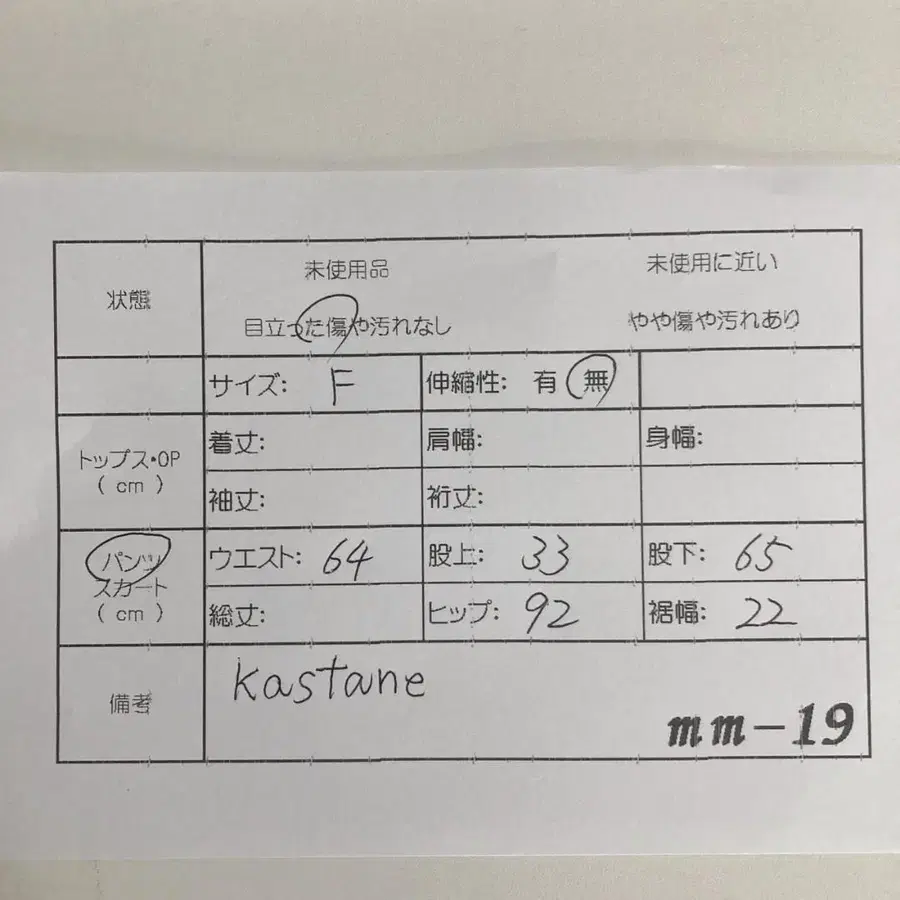 状態
未使用品 未使用に近い
目立った傷や汚れなし やや傷や汚れあり
サイズ: F 伸縮性: 有 無
トップス・OP
( cm )
着丈: 肩幅: 身幅:
袖丈: 裄丈:
パンツ
スカート
( cm )
ウエスト: 64 股上: 33 股下: 65
総丈: ヒップ: 92 裾幅: 22
備考
kastane
mm-19